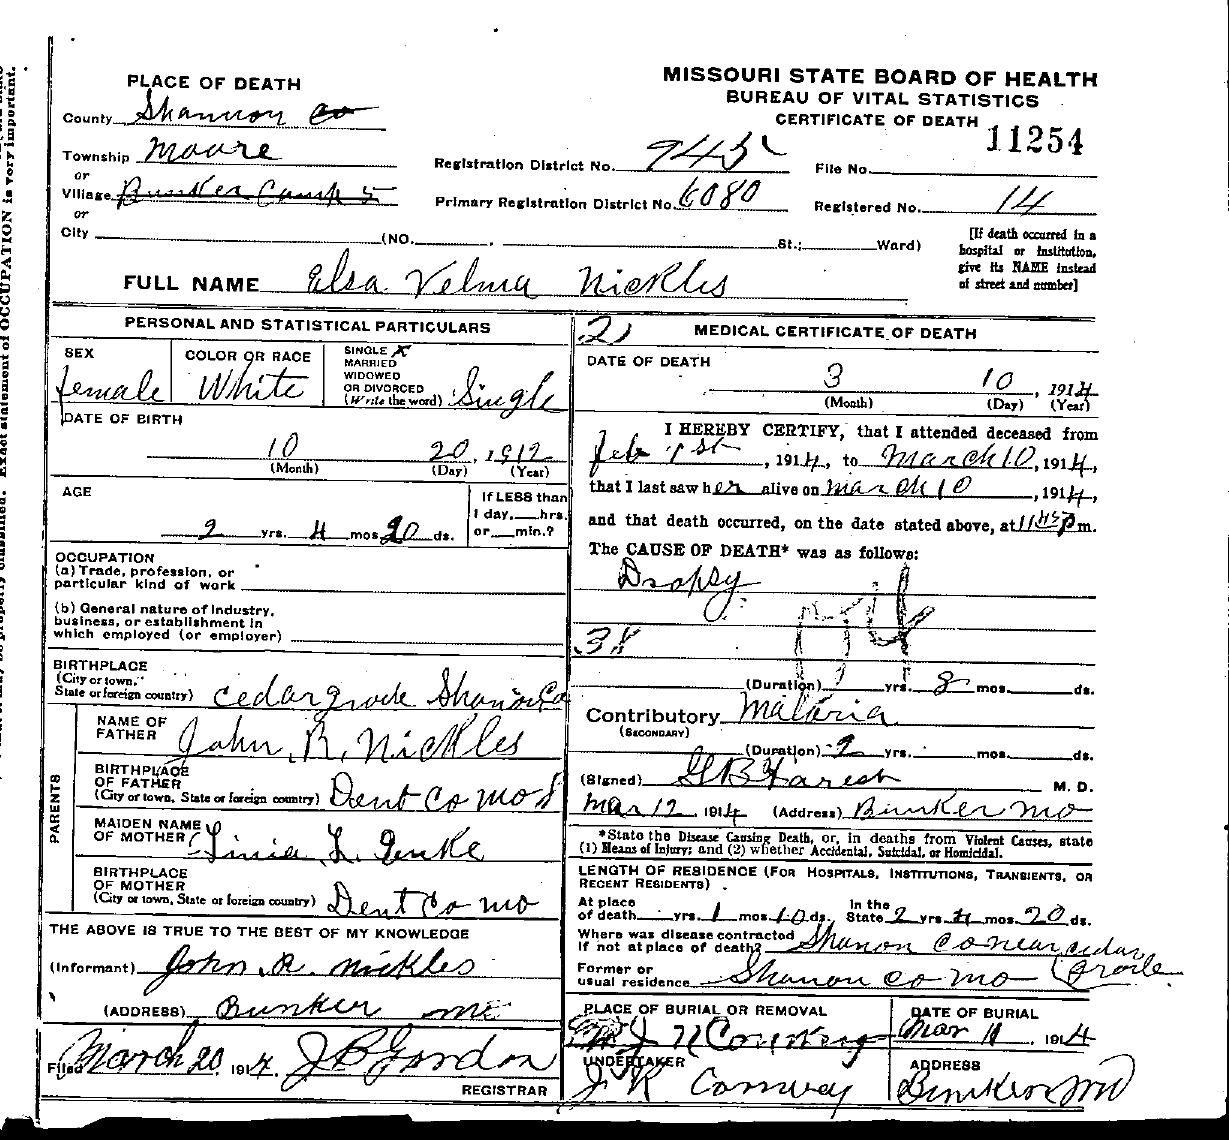 MISSOURI STATE BOARD OF HEALTH
BUREAU OF VITAL STATISTICS
CERTIFICATE OF DEATH
11254
PLACE OF DEATH
County Shannon Co
Township Moore
or
Village Bunker Camp 5
or
City (NO. , St.; Ward)
Registration District No. 745
File No.
Primary Registration District No. 6080
Registered No. 14
[If death occurred in a
hospital or institution,
give its NAME instead
of street and number]
FULL NAME Elsa Velma Nickles
PERSONAL AND STATISTICAL PARTICULARS
SEX
female
COLOR OR RACE
White
SINGLE X
MARRIED
WIDOWED
OR DIVORCED
(Write the word) Single
DATE OF BIRTH
10 20, 1912
(Month) (Day) (Year)
AGE
2 yrs. 4 mos. 20 ds.
If LESS than
1 day, hrs.
or min.?
OCCUPATION
(a) Trade, profession, or
particular kind of work
(b) General nature of industry,
business, or establishment in
which employed (or employer)
BIRTHPLACE
(City or town,
State or foreign country) cedargrove Shanon Co
PARENTS
NAME OF
FATHER John R. Nickles
BIRTHPLACE
OF FATHER
(City or town, State or foreign country) Dent Co mo
MAIDEN NAME
OF MOTHER L.
BIRTHPLACE
OF MOTHER
(City or town, State or foreign country) Dent Co mo
THE ABOVE IS TRUE TO THE BEST OF MY KNOWLEDGE
(Informant) John R. Nickles
(ADDRESS) Bunker mo
Filed March 20, 1914. J B Gordon
REGISTRAR
21
MEDICAL CERTIFICATE OF DEATH
DATE OF DEATH
3 10, 1914
(Month) (Day) (Year)
I HEREBY CERTIFY, that I attended deceased from
feb 1st, 1914, to March 10, 1914,
that I last saw her alive on march 10, 1914,
and that death occurred, on the date stated above, at 11 45 p m.
The CAUSE OF DEATH* was as follows:
Dropsy
38
(Duration) yrs. 8 mos. ds.
Contributory Malaria
(SECONDARY)
(Duration) 2 yrs. mos. ds.
(Signed) M. D.
Mar 12, 1914 (Address) Bunker mo
*State the Disease Causing Death, or, in deaths from Violent Causes, state
(1) Means of Injury; and (2) whether Accidental, Suicidal, or Homicidal.
LENGTH OF RESIDENCE (FOR HOSPITALS, INSTITUTIONS, TRANSIENTS, OR
RECENT RESIDENTS)
At place
of death yrs. 1 mos. 10 ds.
In the
State 2 yrs. 4 mos. 20 ds.
Where was disease contracted
if not at place of death? Shanon Co near cedar
Grove
Former or
usual residence Shanon co mo
PLACE OF BURIAL OR REMOVAL
DATE OF BURIAL
Mar 11, 1914
UNDERTAKER
J R Conway
ADDRESS
Bunker Mo